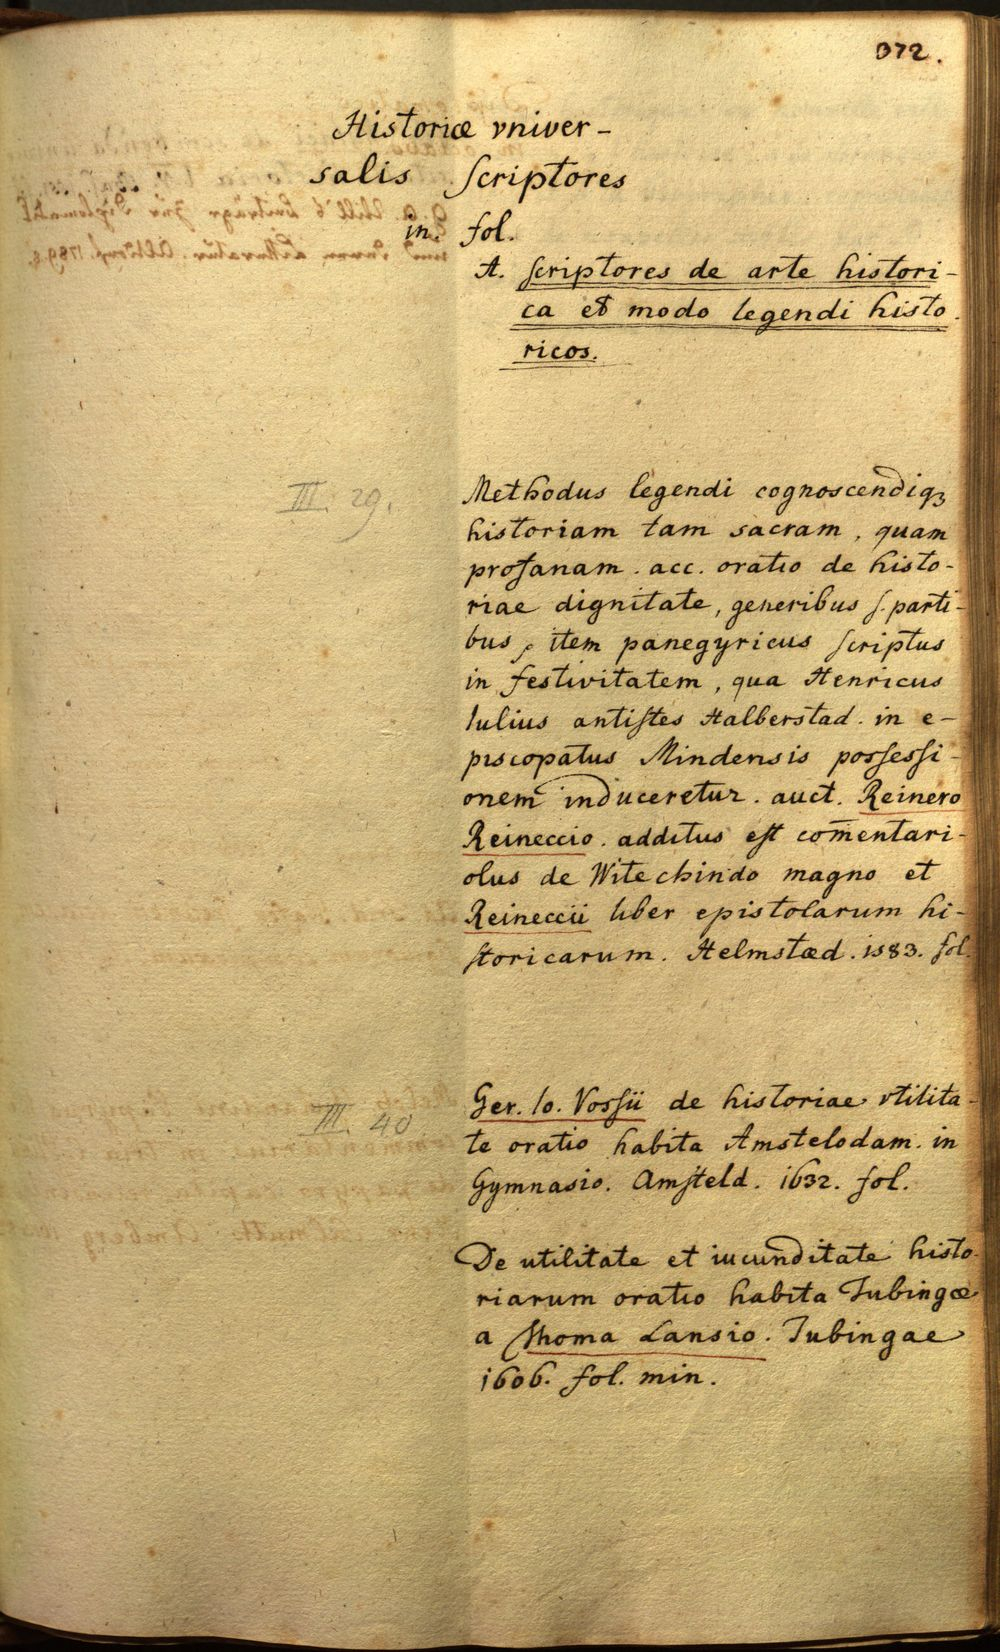 372.
Historiæ vniver-
salis Scriptores
in. fol.
A. Scriptores de arte histori-
ca et modo legendi histo-
ricos.
III. 29.
Methodus legendi cognoscendiqȝ
historiam tam sacram, quam
profanam. acc. oratio de histo-
riae dignitate, generibus s. parti-
bus, item panegyricus scriptus
in festivitatem, qua Henricus
Iulius antistes Halberstad. in e-
piscopatus Mindensis possessi-
onem induceretur. auct. Reinero
Reineccio. additus est com̄entari-
olus de Witechindo magno et
Reineccii liber epistolarum hi-
storicarum. Helmstæd. 1583. fol.
III. 40
Ger. Io. Vossii de historiae vtilita-
te oratio habita Amstelodam. in
Gymnasio. Amsteld. 1632. fol.
De utilitate et iucunditate histo-
riarum oratio habita Tubingæ
a Thoma Lansio. Tubingae
1606. fol. min.